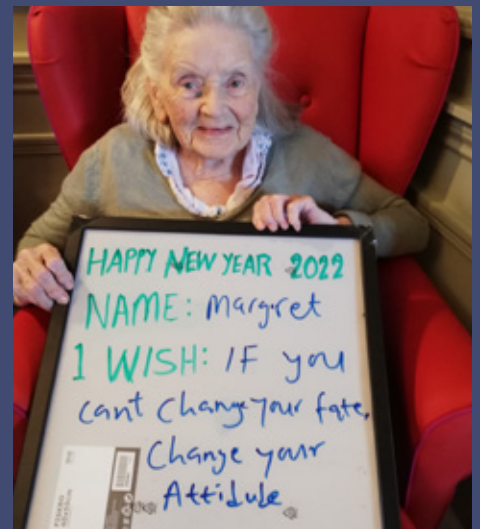 HAPPY NEW YEAR 2022
NAME: Margret
1 WISH: IF you
cant Change your fate,
Change your
Attidule